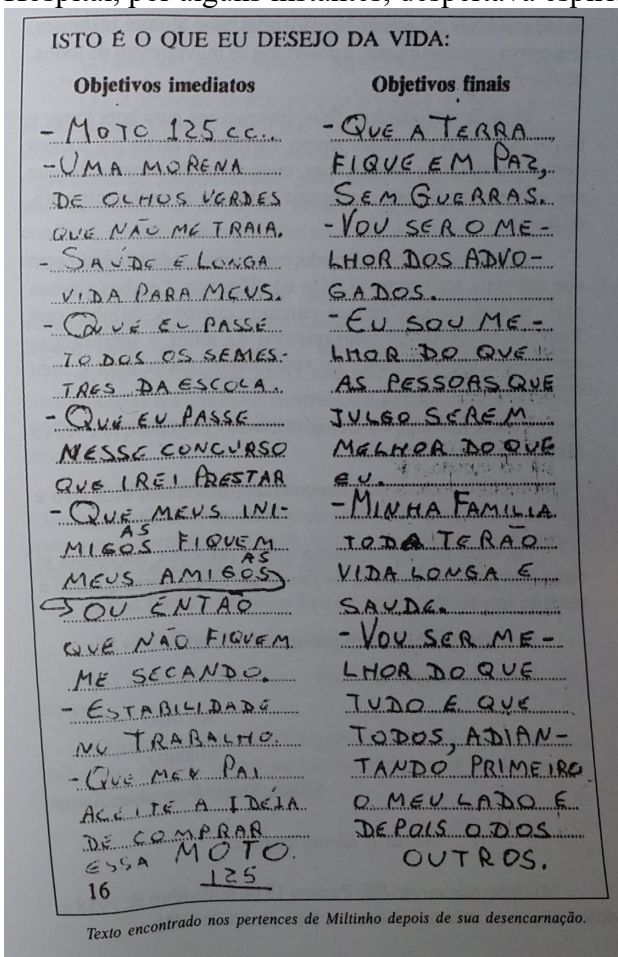 Hospital, por alguns instantes, despertava
ISTO É O QUE EU DESEJO DA VIDA:
Objetivos imediatos
- MOTO 125 cc..
- UMA MORENA
DE OLHOS VERDES
QUE NÃO ME TRAIA.
- SAUDE E LONGA
VIDA PARA MEUS.
- QUE EU PASSE
TODOS OS SEMES-
TRES DA ESCOLA.
- QUE EU PASSE
NESSE CONCURSO
QUE IREI PRESTAR
- QUE MEUS INI-
MIGOS AS FIQUEM
MEUS AMIGOS AS
OU ENTÃO
QUE NÃO FIQUEM
ME SECANDO.
- ESTABILIDADE
NO TRABALHO.
- QUE MEU PAI
ACEITE A IDEIA
DE COMPRAR
ESSA MOTO.
125
16
Objetivos finais
- QUE A TERRA
FIQUE EM PAZ,
SEM GUERRAS.
- VOU SER O ME-
LHOR DOS ADVO-
GADOS.
- EU SOU ME-
LHOR DO QUE
AS PESSOAS QUE
JULGO SEREM
MELHOR DO QUE
EU.
- MINHA FAMILIA
TODA TERÃO
VIDA LONGA E
SAUDE.
- VOU SER ME-
LHOR DO QUE
TUDO E QUE
TODOS, ADIAN-
TANDO PRIMEIRO
O MEU LADO E
DEPOIS O DOS
OUTROS.
Texto encontrado nos pertences de Miltinho depois de sua desencarnação.